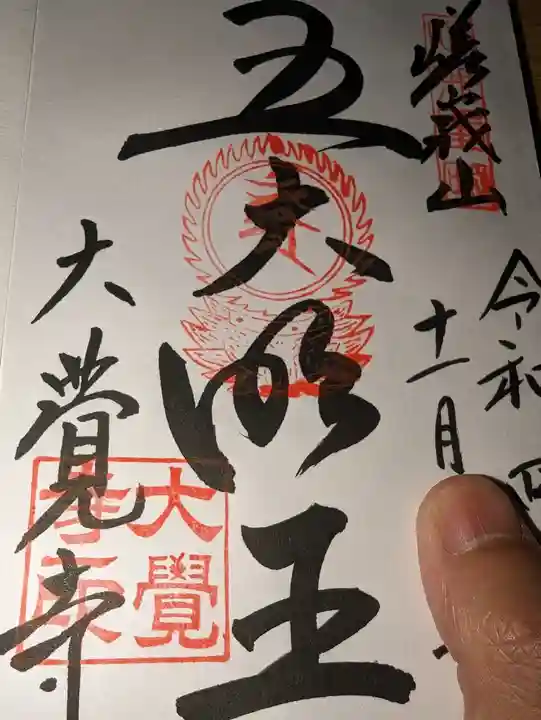 嵯峨山
令和
十一月
五大明王
大覺寺
大覺寺印